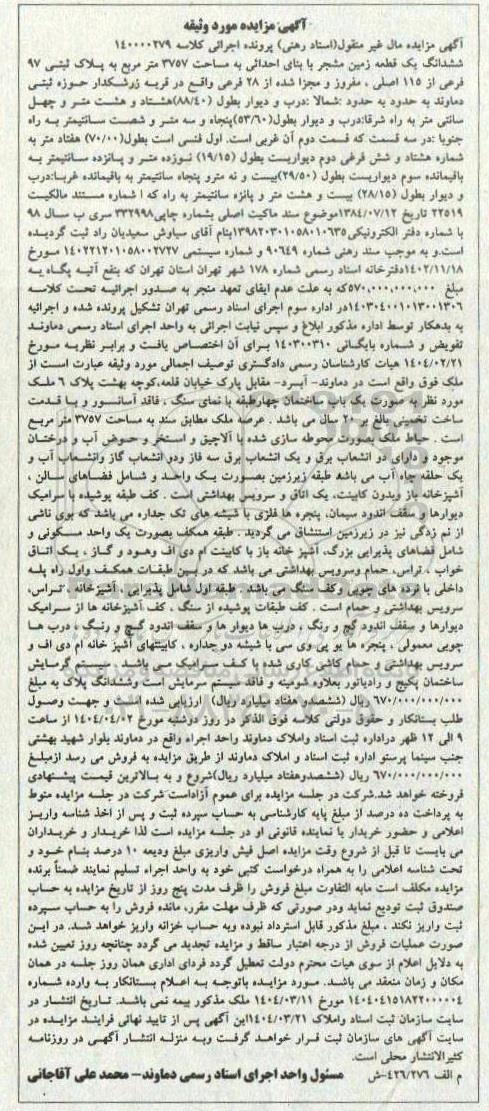 آگهی مزایده مورد وثیقه
آگهی مزایده مال غیر منقول(اسناد رهنی) پرونده اجرائی کلاسه ۱۴۰۰۰۰۲۷۹
ششدانگ یک قطعه زمین مشجر با بنای احداثی به مساحت ۳۷۵۷ متر مربع به پلاک ثبتی ۹۷
فرعی از ۱۱۵ اصلی ، مفروز و مجزا شده از ۲۸ فرعی واقع در قریه زرشکدار حوزه ثبتی
دماوند به حدود به حدود :شمالا :درب و دیوار بطول (۸۸/۴۰)هشتاد و هشت متر و چهل
سانتی متر به راه شرقا:درب و دیوار بطول(۵۳/۶۰)پنجاه و سه متر و شصت سانتیمتر به راه
جنوبا :در سه قسمت که قسمت دوم آن غربی است. اول فنسی است بطول(۷۰/۰۰) هفتاد متر به
شماره هشتاد و شش فرعی دوم دیواریست بطول (۱۹/۱۵) نوزده متر و پانزده سانتیمتر به
باقیمانده سوم دیواریست بطول (۲۹/۵۰)بیست و نه مترو پنجاه سانتیمتر به باقیمانده غربا:درب
و دیوار بطول (۲۸/۱۵) بیست و هشت متر و پانزه سانتیمتر به راه که ا شماره مستند مالکیت
۲۲۵۱۹ تاریخ ۱۳۸۴/۰۷/۱۲موضوع سند ماکیت اصلی بشماره چاپی۳۳۲۹۹۸ سری ب سال ۹۸
با شماره دفتر الکترونیکی۱۳۹۸۲۰۳۰۱۰۵۸۰۱۰۶۳۵بنام آقای سیاوش سعیدیان راد ثبت گردیده
است.و به موجب سند رهنی شماره ۹۰۶۴۹ و شماره سیستمی ۱۴۰۲۲۱۲۰۱۰۵۸۰۰۲۷۲۷ مورخ
۱۴۰۲/۱۱/۱۸دفترخانه اسناد رسمی شماره ۱۷۸ شهر تهران استان تهران که بنفع آتیه پگاه به
مبلغ ۵۷۰,۰۰۰,۰۰۰,۰۰۰که به علت عدم ایفای تعهد منجر به صدور اجرائیه تحت کلاسه
۱۴۰۳۰۴۰۰۱۰۱۳۰۰۱۳۰۶در اداره سوم اجرای اسناد رسمی تهران تشکیل پرونده شده و اجرائیه
به بدهکار توسط اداره مذکور ابلاغ و سپس نیابت اجرائی به واحد اجرای اسناد رسمی دماوند
تفویض و شماره بایگانی ۱۴۰۳۰۰۳۱۰ برای آن اختصاص یافت و برابر نظریه مورخ
۱۴۰۴/۰۲/۲۱ هیات کارشناسان رسمی دادگستری توصیف اجمالی مورد وثیقه عبارت است از
ملک فوق واقع است در دماوند- آبسرد- مقابل پارک خیابان قلعه،کوچه بهشت پلاک ۶ ملک
مورد نظر به صورت یک باب ساختمان چهارطبقه با نمای سنگ ، فاقد آسانسور و با قدمت
ساخت تخمینی بالغ بر ۲۰ سال می باشد . عرصه ملک مطابق سند به مساحت ۳۷۵۷ متر مربع
است . حیاط ملک بصورت محوطه سازی شده با آلاچیق و استخر و حوض آب و درختان
موجود و دارای دو انشعاب برق و یک انشعاب برق سه فاز ودو انشعاب گاز وانشعاب آب و
یک حلقه چاه آب می باشد طبقه زیرزمین بصورت یک واحد و شامل فضاهای سالن ،
آشپزخانه باز وبدون کابینت، یک اتاق و سرویس بهداشتی است . کف طبقه پوشیده با سرامیک
دیوارها و سقف اندود سیمان، پنجره ها فلزی با شیشه های تک جداره می باشد که بوی ناشی
از نم زدگی نیز در زیرزمین استنشاق می گردید . طبقه همکف بصورت یک واحد مسکونی و
شامل فضاهای پذیرایی بزرگ، آشپز خانه باز با کابینت ام دی اف وهود و گاز ، یک اتاق
خواب ، تراس، حمام وسرویس بهداشتی می باشد که در بین طبقات همکف واول راه پله
داخلی با نرده های چوبی وکف سنگ می باشد . طبقه اول شامل پذیرایی ، آشپزخانه ، تراس،
سرویس بهداشتی و حمام است . کف طبقات پوشیده از سنگ ، کف آشپزخانه ها از سرامیک
دیوارها و سقف اندود گچ و رنگ ، درب ها دیوار ها و سقف اندود گچ و رنگ ، درب ها
چوبی معمولی ، پنجره ها یو پی وی سی با شیشه دو جداره ، کابینتهای آشپز خانه ام دی اف و
سرویس بهداشتی و حمام کاشی کاری شده با کف سرامیک می باشد . سیستم گرمایش
ساختمان پکیج و رادیاتور بعلاوه شومینه و فاقد سیستم سرمایش است وششدانگ پلاک به مبلغ
۶۷۰/۰۰۰/۰۰۰/۰۰۰ ریال (ششصدو هفتاد میلیارد ریال) ارزیابی شده است و جهت وصول
طلب بستانکار و حقوق دولتی کلاسه فوق الذکر در روز دوشنبه مورخ ۱۴۰۴/۰۴/۰۲ از ساعت
۹ الی ۱۲ ظهر دراداره ثبت اسناد واملاک دماوند واحد اجراء واقع در دماوند بلوار شهید بهشتی
جنب سینما پرستو اداره ثبت اسناد و املاک دماوند از طریق مزایده به فروش می رسد ازمبلغ
۶۷۰/۰۰۰/۰۰۰/۰۰۰ ریال (ششصدوهفتاد میلیارد ریال)شروع و به بالاترین قیمت پیشنهادی
فروخته خواهد شد.شرکت در جلسه مزایده برای عموم آزاداست شرکت در جلسه مزایده منوط
به پرداخت ده درصد از مبلغ پایه کارشناسی به حساب سپرده ثبت و پس از اخذ شناسه واریز
اعلامی و حضور خریدار یا نماینده قانونی او در جلسه مزایده است لذا خریدار و خریداران
می بایست تا قبل از شروع وقت مزایده اصل فیش واریزی مبلغ ودیعه ۱۰ درصد بنام خود و
تحت شناسه اعلامی را به همراه درخواست کتبی خود به واحد اجراء تسلیم نمایند ضمناً برنده
مزایده مکلف است مابه التفاوت مبلغ فروش را ظرف مدت پنج روز از تاریخ مزایده به حساب
صندوق ثبت تودیع نماید ودر صورتی که ظرف مهلت مقرر، مانده فروش را به حساب سپرده
ثبت واریز نکند ، مبلغ مذکور قابل استرداد نبوده وبه حساب خزانه واریز خواهد شد. در این
صورت عملیات فروش از درجه اعتبار ساقط و مزایده تجدید می گردد چنانچه روز تعیین شده
به دلایل اعلام از سوی هیات محترم دولت تعطیل گردد فردای اداری همان روز جلسه در همان
مکان و زمان منعقد می باشد. مورد مزایده باتوجه به اعلام بستانکار به وارده شماره
۱۴۰۴۰۴۱۵۱۸۲۲۰۰۰۰۰۴ مورخ ۱۴۰۴/۰۳/۱۱ ملک مذکور بیمه نمی باشد. تاریخ انتشار در
سایت سازمان ثبت اسناد واملاک ۱۴۰۴/۰۳/۲۱این آگهی پس از تایید نهائی فرایند مزایده در
سایت آگهی های سازمان ثبت قرار خواهد گرفت وبه منزله انتشار آگهی در روزنامه
کثیرالانتشار محلی است.
م الف ۴۲۶/۲۷۶-ش مسئول واحد اجرای اسناد رسمی دماوند- محمد علی آقاجانی